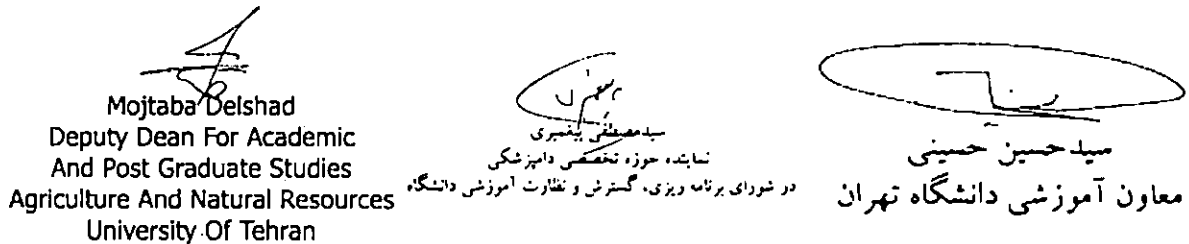 Mojtaba Delshad
Deputy Dean For Academic
And Post Graduate Studies
Agriculture And Natural Resources
University Of Tehran
سیدمصطفی پیغمبری
نماینده حوزه تخصصی دامپزشکی
در شورای برنامه ریزی، گسترش و نظارت آموزشی دانشگاه
سیدحسین حسینی
معاون آموزشی دانشگاه تهران